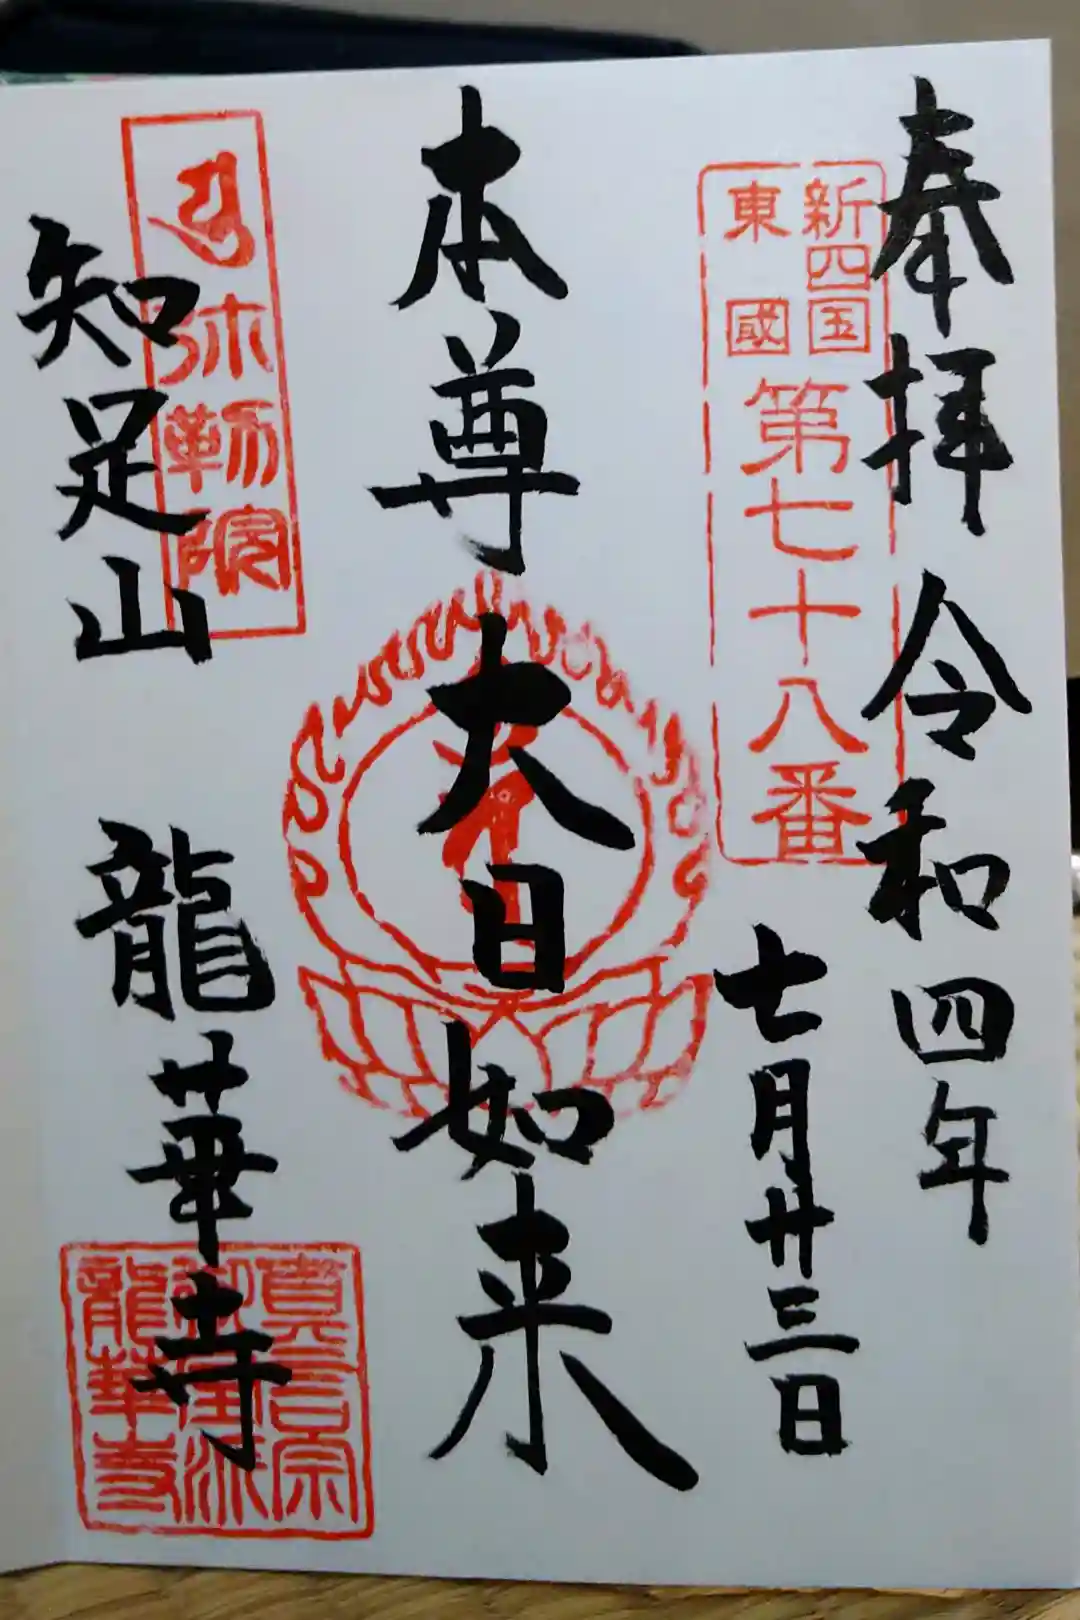 奉拝 令和四年
七月廿三日
新四国
東國
第七十八番
本尊 大日如来
弥勒院
知足山 龍華寺
真言宗
御室派
龍華寺